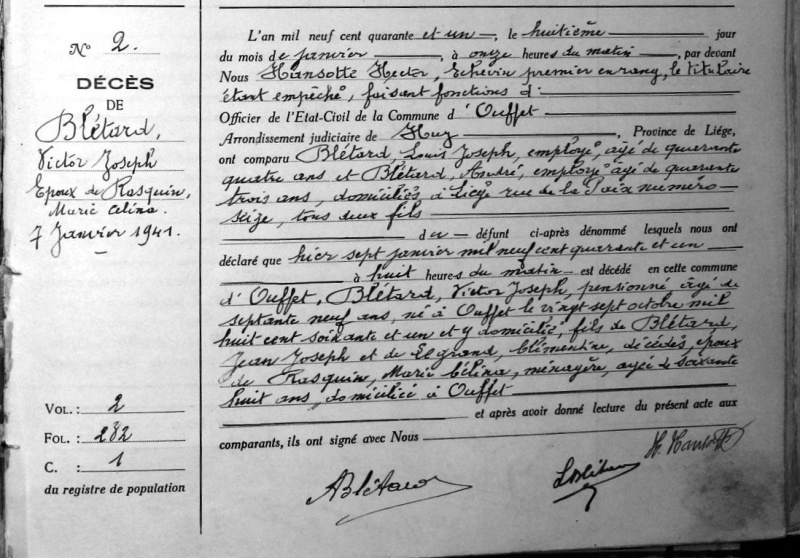 N° 2.
DÉCÈS
DE
Blétard,
Victor Joseph
Epoux de Rasquin,
Marie Célina.
7 Janvier 1941.
VOL. : 2
FOL. : 282
C. : 1
du registre de population
L'an mil neuf cent quarante et un, le huitième jour
du mois de janvier, à onze heures du matin, par devant
Nous Hansotte Hector, Echevin premier en rang, le titulaire
étant empêché, faisant fonctions d'
Officier de l'Etat-Civil de la Commune d'Ouffet
Arrondissement judiciaire de Huy, Province de Liége,
ont comparu Blétard, Louis Joseph, employé, âgé de quarante
quatre ans et Blétard, André, employé âgé de quarante
trois ans, domiciliés à Liége rue de la Paix numéro
seize, tous deux fils
du défunt ci-après dénommé lesquels nous ont
déclaré que hier sept janvier mil neuf cent quarante et un
à huit heures du matin est décédé en cette commune
d'Ouffet, Blétard, Victor Joseph, pensionné âgé de
septante neuf ans, né à Ouffet le vingt sept octobre mil
huit cent soixante et un et y domicilié, fils de Blétard,
Jean Joseph et de Elgrand, Clémentine, décédés, époux
de Rasquin, Marie Célina, ménagère, âgée de soixante
huit ans, domicilié à Ouffet
et après avoir donné lecture du présent acte aux
comparants, ils ont signé avec Nous
H. Hansotte
ABlétard